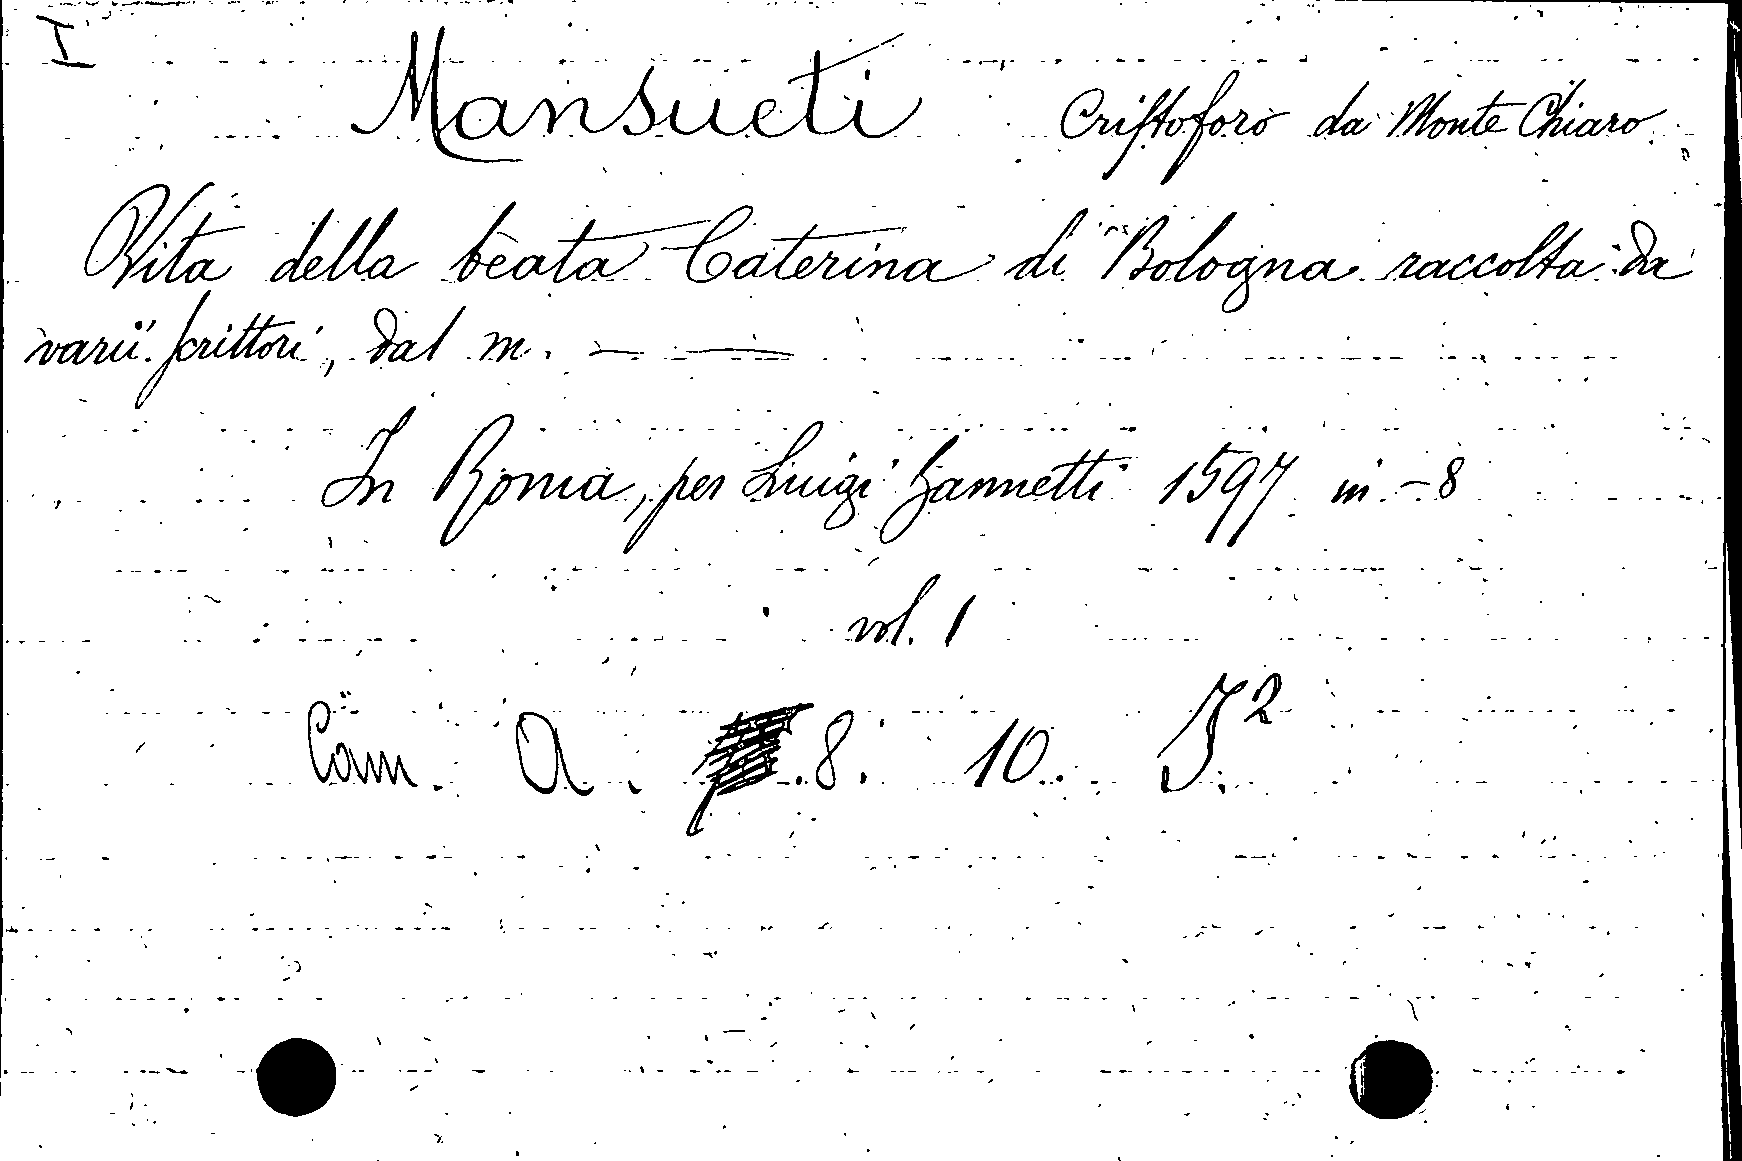 I
Mansueti Cristoforo da Monte Chiaro
Vita della beata Caterina di Bologna raccolta da
varii scrittori, dal m. — —
In Roma, per Luigi Zannetti 1597 in-8
vol. 1
Cam. A. .8. 10.